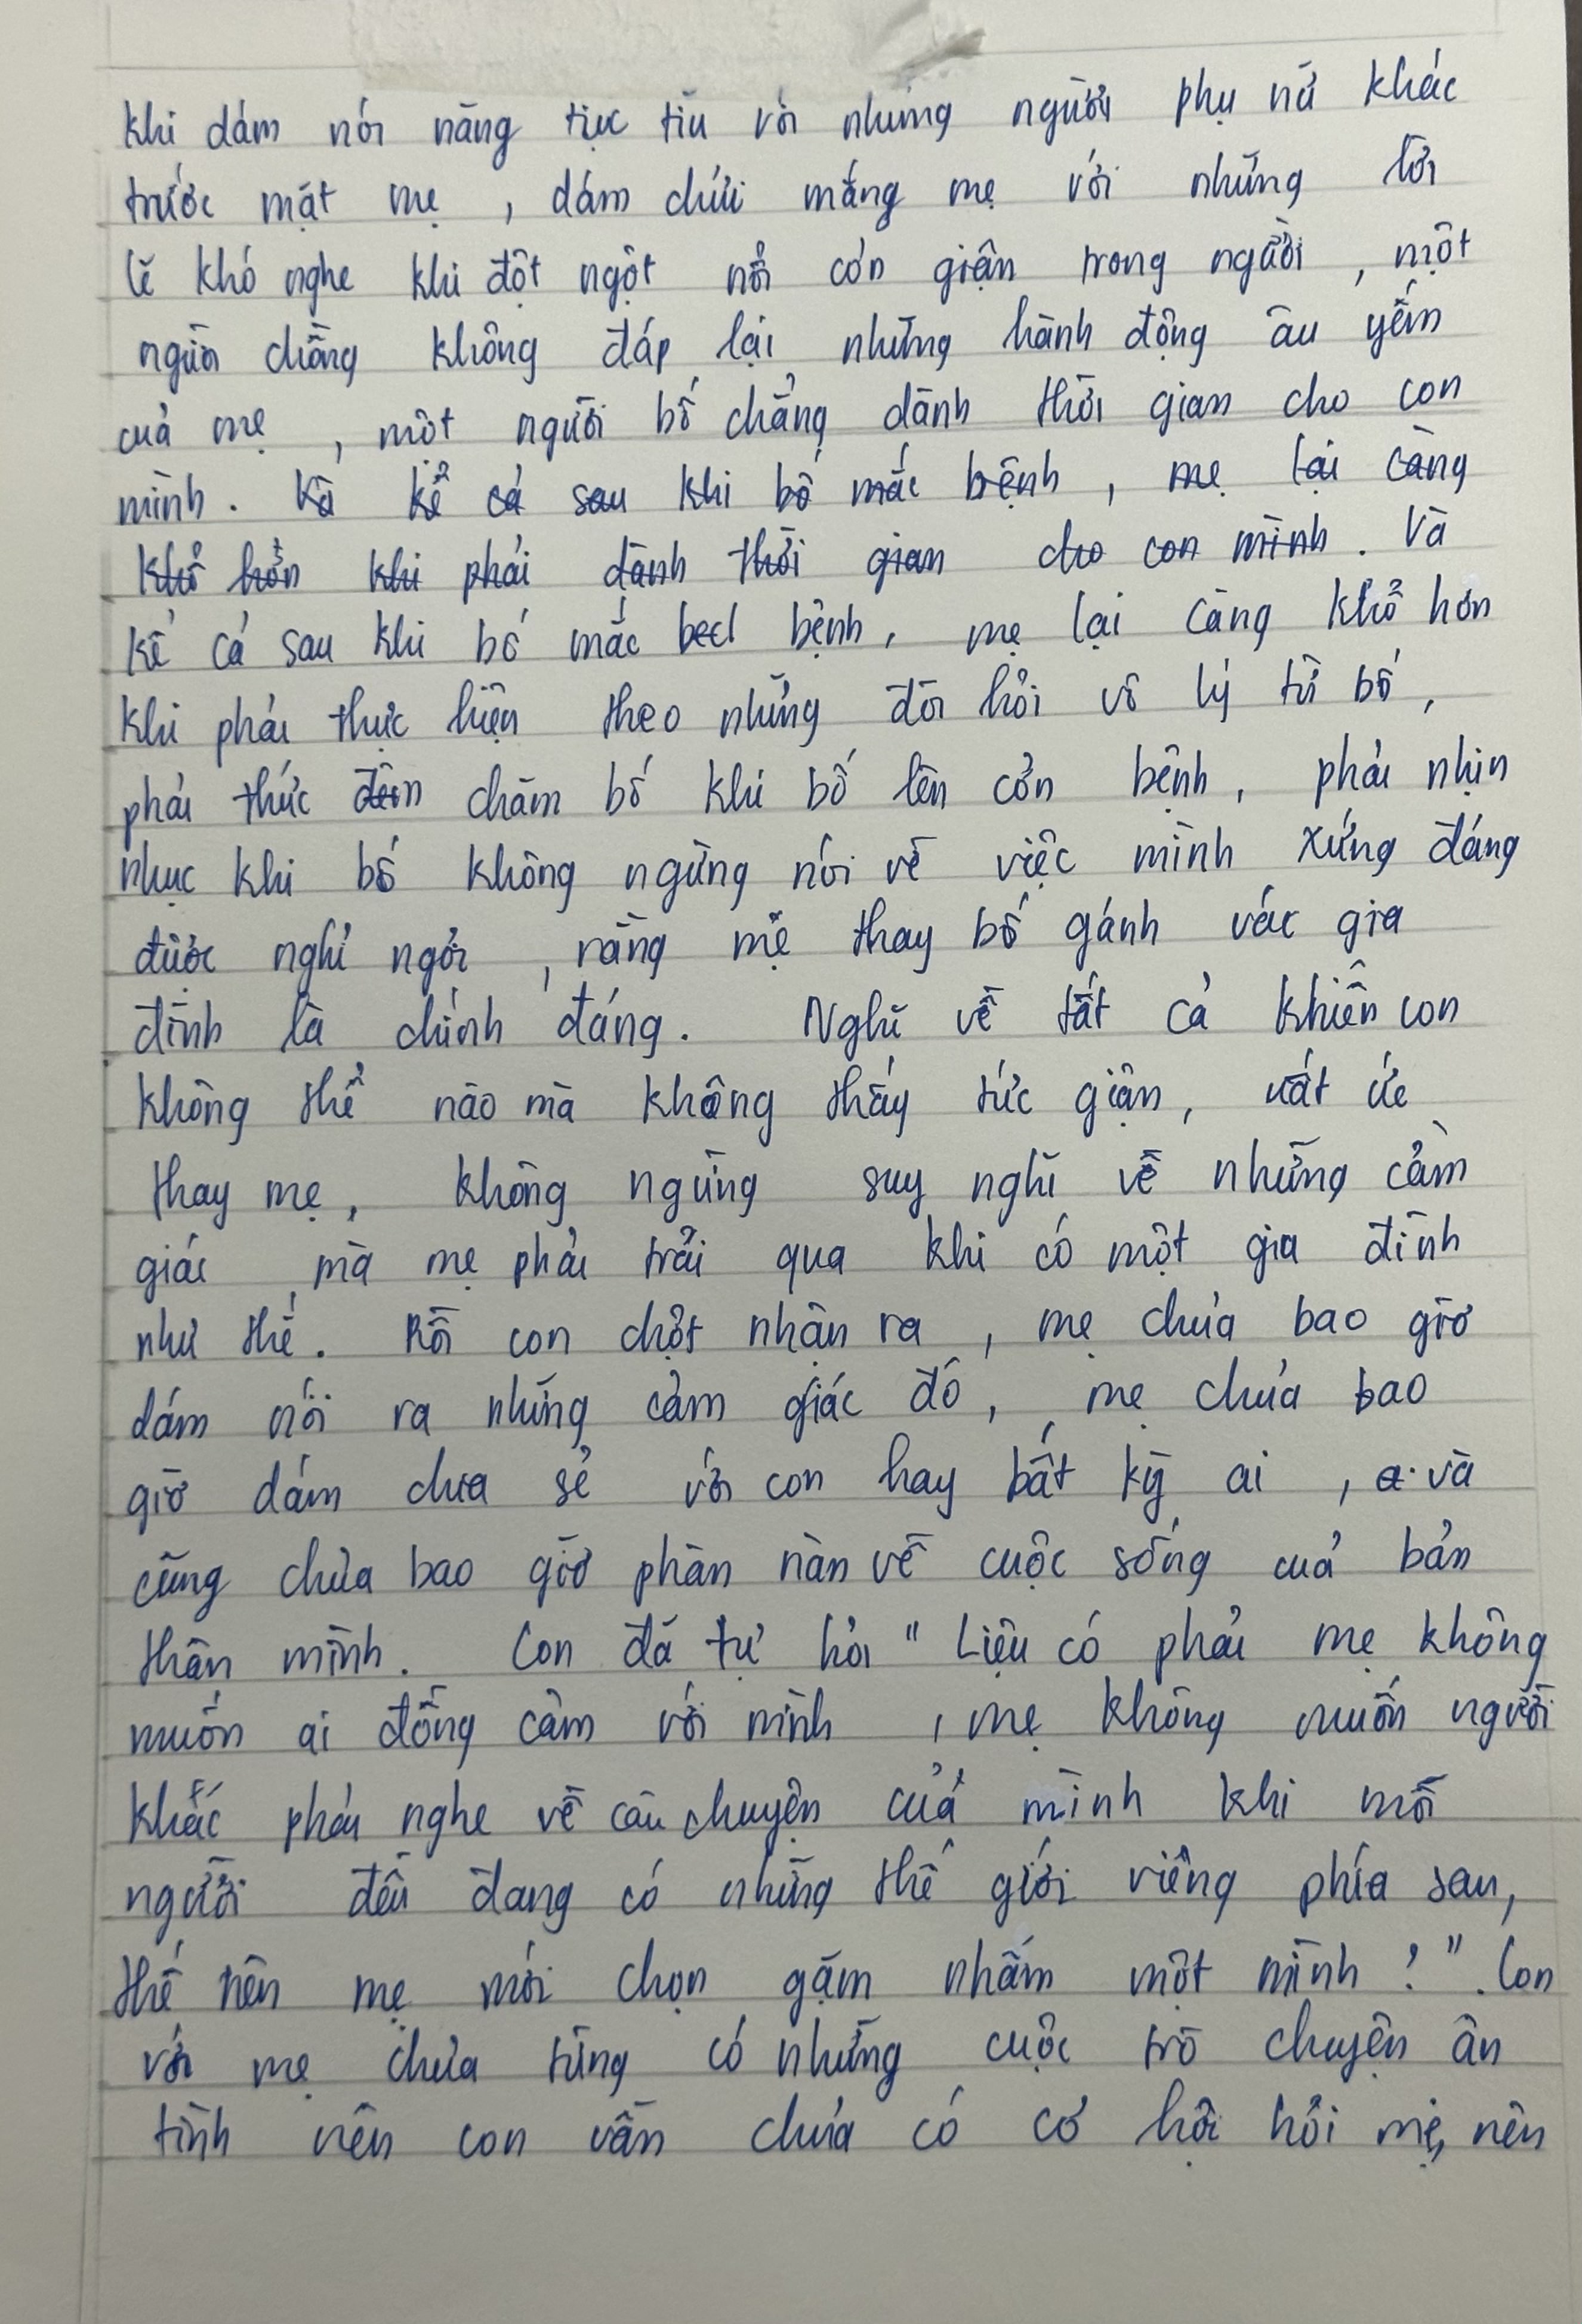 khi dám nói năng tục tĩu với những người phụ nữ khác
trước mặt mẹ, dám chửi mắng mẹ với những lời
lẽ khó nghe khi đột ngột nổi cơn giận trong người, một
người chồng không đáp lại những hành động âu yếm
của mẹ, một người bố chẳng dành thời gian cho con
mình. Và kể cả sau khi bố mắc bệnh, mẹ lại càng
khổ hơn khi phải dành thời gian cho con mình. Và
kể cả sau khi bố mắc bệnh, mẹ lại càng khổ hơn
khi phải thực hiện theo những đòi hỏi vô lý từ bố,
phải thức đêm chăm bố khi bố lên cơn bệnh, phải nhịn
nhục khi bố không ngừng nói về việc mình xứng đáng
được nghỉ ngơi, rằng mẹ thay bố gánh vác gia
đình là chính đáng. Nghĩ về tất cả khiến con
không thể nào mà không thấy tức giận, uất ức
thay mẹ, không ngừng suy nghĩ về những cảm
giác mà mẹ phải trải qua khi có một gia đình
như thế. Rồi con chợt nhận ra, mẹ chưa bao giờ
dám nói ra những cảm giác đó, mẹ chưa bao
giờ dám chia sẻ với con hay bất kỳ ai, và
cũng chưa bao giờ phàn nàn về cuộc sống của bản
thân mình. Con đã tự hỏi "Liệu có phải mẹ không
muốn ai đồng cảm với mình, mẹ không muốn người
khác phải nghe về câu chuyện của mình khi mỗi
người đều đang có những thế giới riêng phía sau,
thế nên mẹ mới chọn gặm nhấm một mình?". Con
với mẹ chưa từng có những cuộc trò chuyện ân
tình nên con vẫn chưa có cơ hội hỏi mẹ, nên